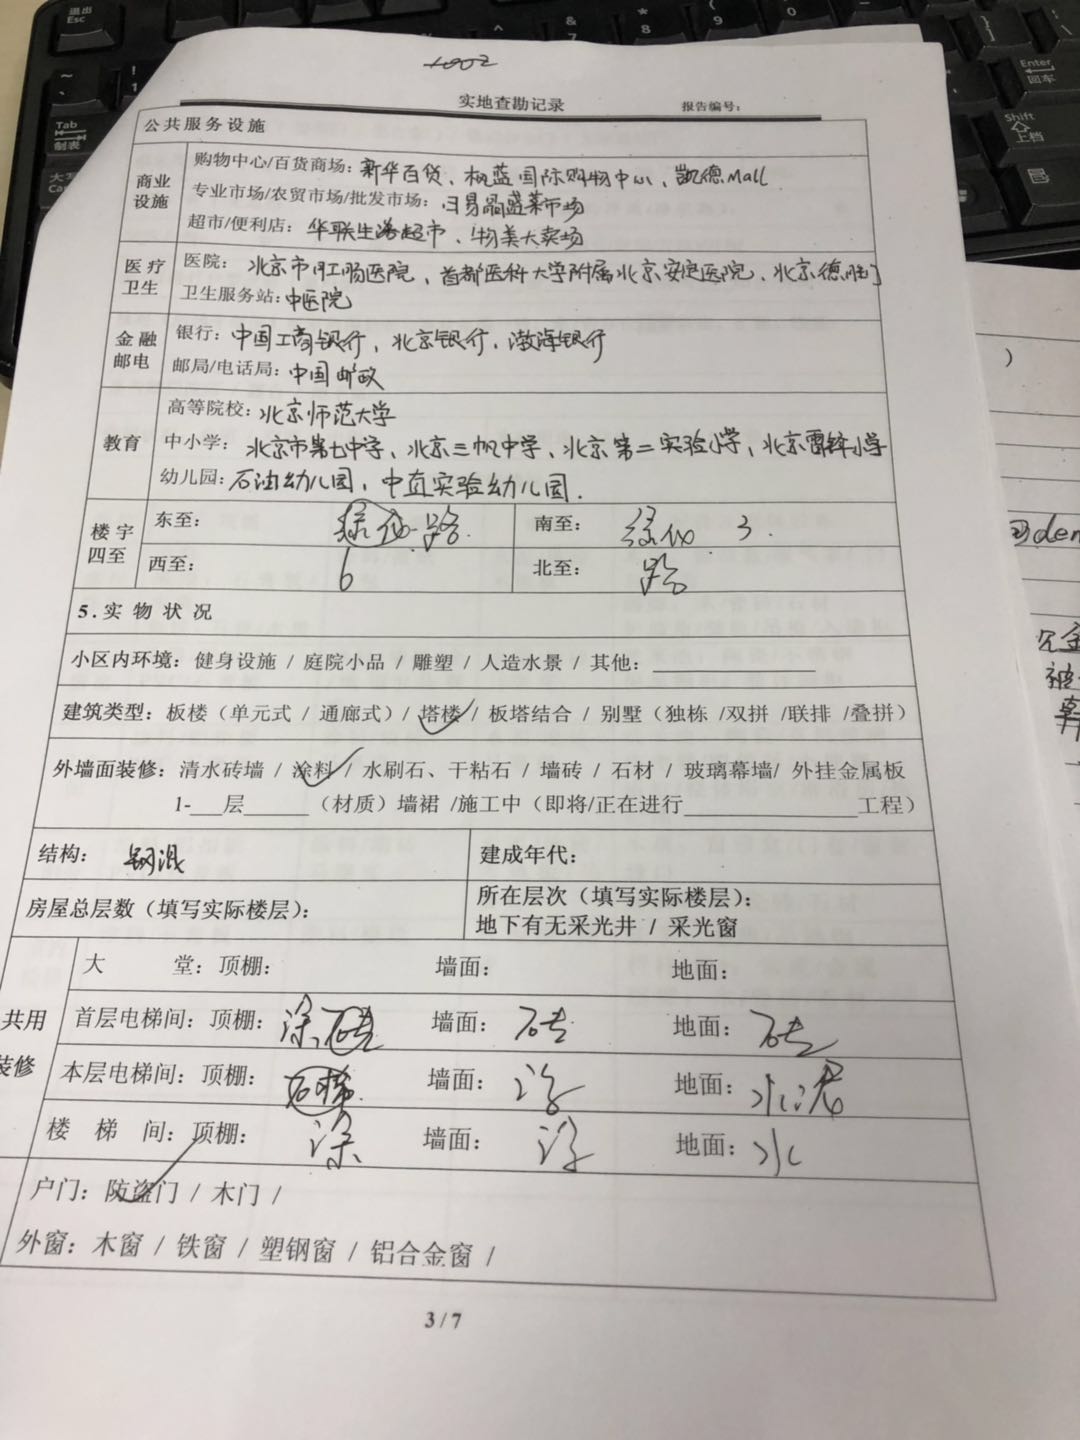 1002
实地查勘记录 报告编号：
公共服务设施
商业设施 购物中心/百货商场：新华百货、枫蓝国际购物中心、凯德Mall
专业市场/农贸市场/批发市场：日易晶盛菜市场
超市/便利店：华联生活超市、物美大卖场
医疗卫生 医院：北京市肛肠医院、首都医科大学附属北京安定医院、北京德胜门
卫生服务站：中医院
金融邮电 银行：中国工商银行、北京银行、渤海银行
邮局/电话局：中国邮政
教育 高等院校：北京师范大学
中小学：北京市第七中学、北京三帆中学、北京第二实验小学、北京雷锋小学
幼儿园：石油幼儿园，中直实验幼儿园.
楼宇四至 东至：绿化路 南至：绿化 3.
西至：6 北至：路
5.实物状况
小区内环境：健身设施 / 庭院小品 / 雕塑 / 人造水景 / 其他：
建筑类型：板楼（单元式 / 通廊式）/ 塔楼 / 板塔结合 / 别墅（独栋 /双拼 /联排 /叠拼）
外墙面装修：清水砖墙 / 涂料 / 水刷石、干粘石 / 墙砖 / 石材 / 玻璃幕墙/ 外挂金属板
1-___层______（材质）墙裙 /施工中（即将/正在进行________________工程）
结构：钢混 建成年代：
房屋总层数（填写实际楼层）： 所在层次（填写实际楼层）：
地下有无采光井 / 采光窗
大 堂：顶棚： 墙面： 地面：
共用装修 首层电梯间：顶棚：涂 墙面：砖 地面：砖
本层电梯间：顶棚： 墙面：涂 地面：水泥
楼 梯 间：顶棚：涂 墙面：涂 地面：水
户门：防盗门 / 木门 /
外窗：木窗 / 铁窗 / 塑钢窗 / 铝合金窗 /
3/7